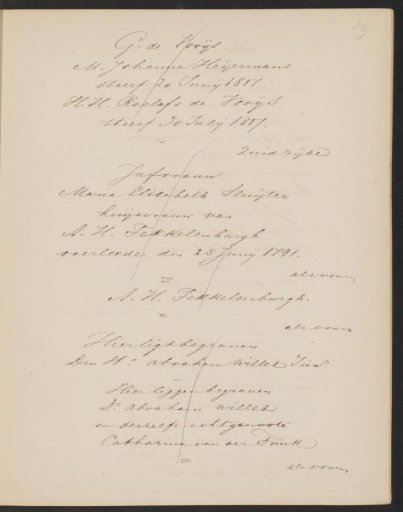 49
G. de Kooys
M. Johanna Heyermans
stierf 20 Junij 1817.
H. H. Roelofs de Vooys
stierf 30 July 1887.
Zuidzijde
Jufvrouw
Maria Elisabeth Sluyter
huysvrouw van
A. H. Fekkelenburgh
overleeden den 25 Junij 1791.
als voren
A. H. Fekkelenburgh.
als voren
Hier ligt begraven
Den Hr. Abraham Willet
Hier liggen begraven
Dr. Abraham Willet
en deszelfs echtgenoote
Catharina van der
als voren